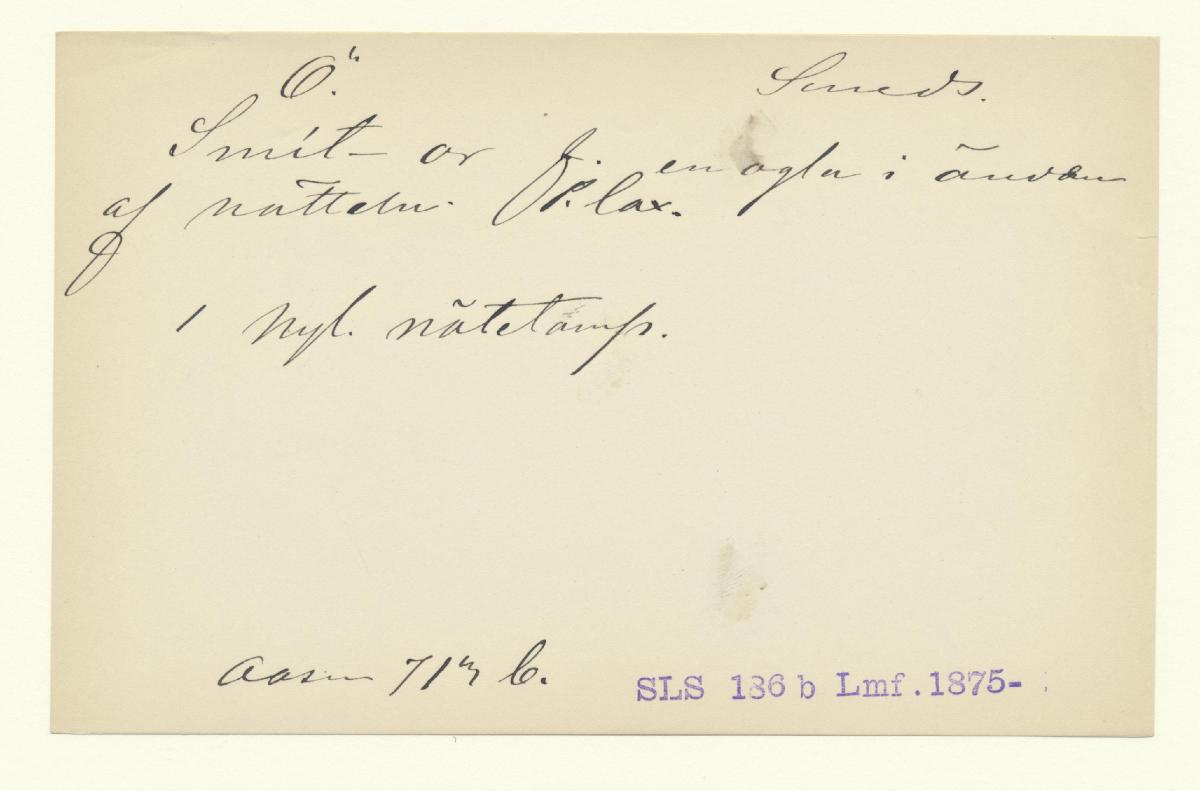 Ö. Smeds.
Smít- or f. en ögla i ändan
af nätteln. P. lax.
1 Nyl. nätstamp.
Aasen 713 b.
SLS 186 b Lmf. 1875-